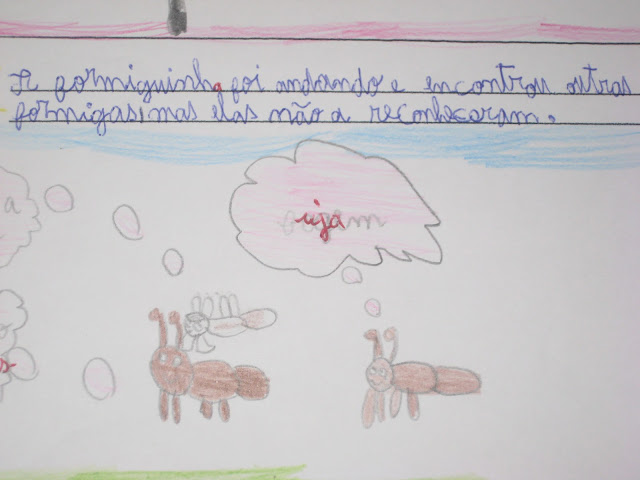 A formiguinha foi andando e encontrou outras
formigas, mas elas não a reconheceram.
a
uja